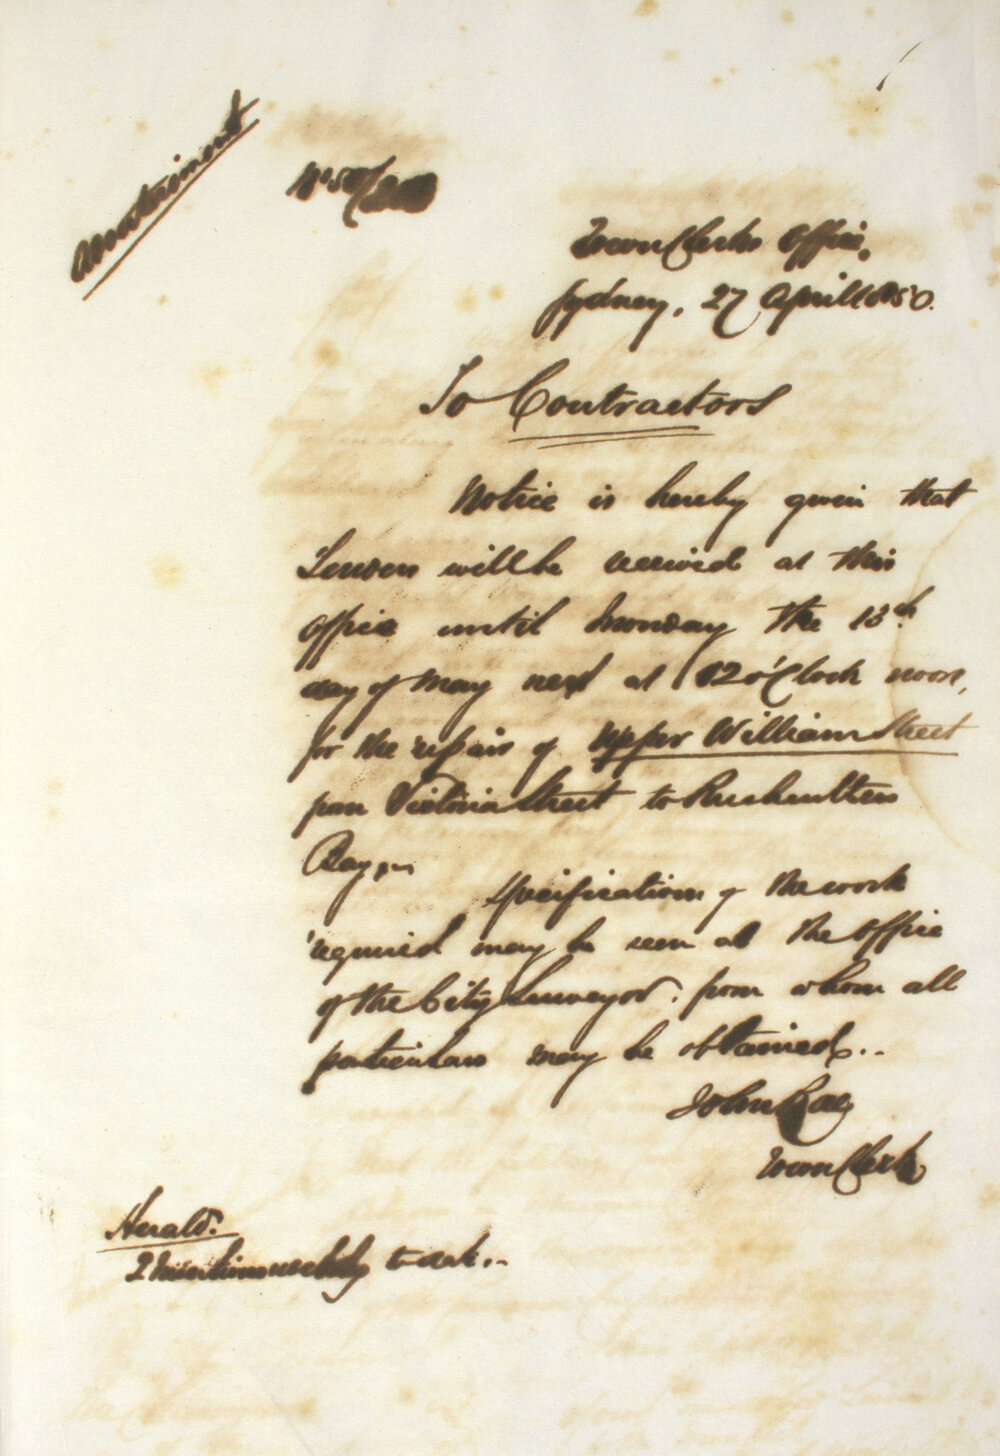 Advertisement
No 50/
Town Clerks Office,
Sydney, 27 April 1850.
To Contractors
Notice is hereby given that
Tenders will be received at this
Office until Monday the 13th
day of May next at 12 o'Clock noon,
for the repair of Upper William Street
from Victoria Street to Rushcutters
Bay,
Specifications of the work
required may be seen at the Office
of the City Surveyor. from whom all
particulars may be obtained..
John Rae
Town Clerk
Herald.
2 Insertions weekly to date..